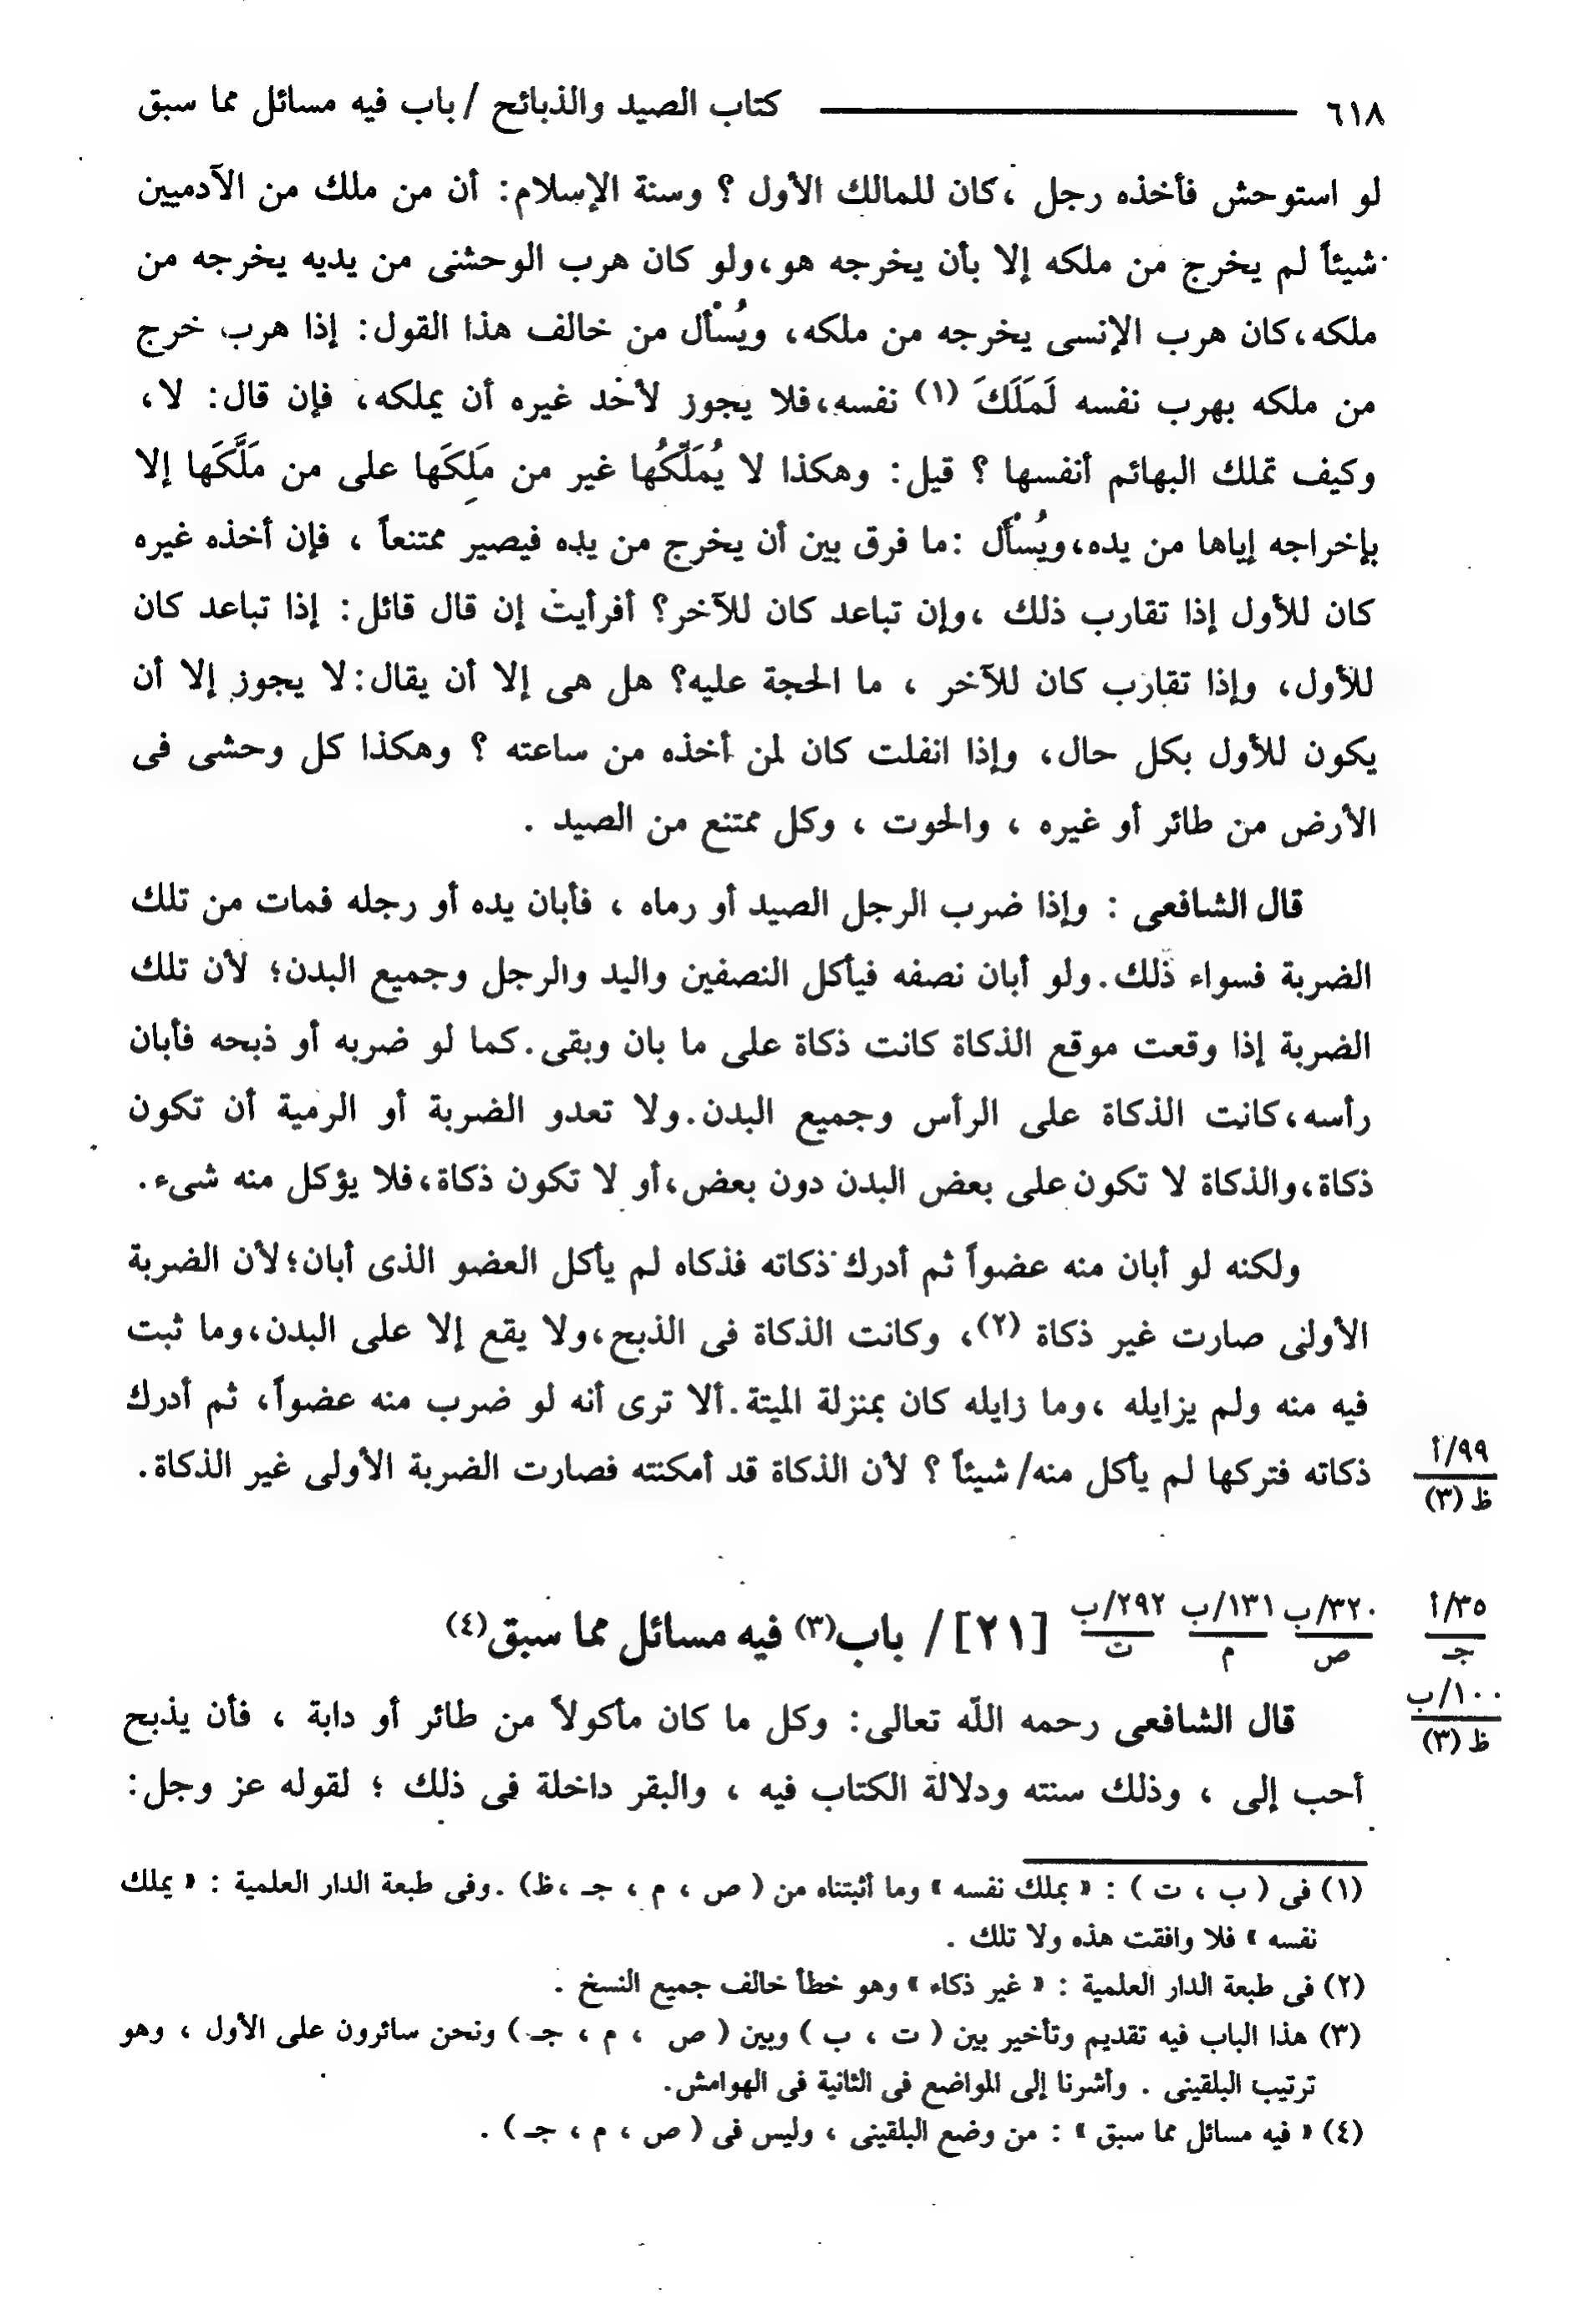 ٦١٨ كتاب الصيد والذبائح / باب فيه مسائل مما سبق
لو استوحش فأخذه رجل ، كان للمالك الأول ؟ وسنة الإسلام: أن من ملك من الآدميين
شيئاً لم يخرج من ملكه إلا بأن يخرجه هو، ولو كان هرب الوحشى من يديه يخرجه من
ملكه، كان هرب الإنسى يخرجه من ملكه، ويُسْأل من خالف هذا القول: إذا هرب خرج
من ملكه بهرب نفسه لَمَلَكَ (١) نفسه، فلا يجوز لأحد غيره أن يملكه، فإن قال: لا،
وكيف تملك البهائم أنفسها ؟ قيل: وهكذا لا يُمَلِّكُها غير من مَلِكَها على من مَلَّكَها إلا
بإخراجه إياها من يده، ويُسْأَل: ما فرق بين أن يخرج من يده فيصير ممتنعاً ، فإن أخذه غيره
كان للأول إذا تقارب ذلك ، وإن تباعد كان للآخر؟ أفرأيت إن قال قائل: إذا تباعد كان
للأول، وإذا تقارب كان للآخر ، ما الحجة عليه؟ هل هى إلا أن يقال: لا يجوز إلا أن
يكون للأول بكل حال، وإذا انفلت كان لمن أخذه من ساعته ؟ وهكذا كل وحشى فى
الأرض من طائر أو غيره ، والحوت ، وكل ممتنع من الصيد .
قال الشافعى : وإذا ضرب الرجل الصيد أو رماه ، فأبان يده أو رجله فمات من تلك
الضربة فسواء ذلك. ولو أبان نصفه فيأكل النصفين واليد والرجل وجميع البدن؛ لأن تلك
الضربة إذا وقعت موقع الذكاة كانت ذكاة على ما بان وبقى. كما لو ضربه أو ذبحه فأبان
رأسه، كانت الذكاة على الرأس وجميع البدن. ولا تعدو الضربة أو الرمية أن تكون
ذكاة، والذكاة لا تكون على بعض البدن دون بعض، أو لا تكون ذكاة، فلا يؤكل منه شىء.
ولكنه لو أبان منه عضواً ثم أدرك ذكاته فذكاه لم يأكل العضو الذى أبان؛ لأن الضربة
الأولى صارت غير ذكاة (٢)، وكانت الذكاة فى الذبح، ولا يقع إلا على البدن، وما ثبت
فيه منه ولم يزايله ، وما زايله كان بمنزلة الميتة. ألا ترى أنه لو ضرب منه عضواً، ثم أدرك
ذكاته فتركها لم يأكل منه/ شيئاً ؟ لأن الذكاة قد أمكنته فصارت الضربة الأولى غير الذكاة.
٩٩/أ
ظ (٣)
٣٥/أ
جـ
٣٢٠/ب
ص
١٣١/ب
م
٢٩٢/ب
ت
[٢١] / باب(٣) فيه مسائل مما سبق(٤)
١٠٠/ب
ظ (٣)
قال الشافعى رحمه الله تعالى: وكل ما كان مأكولاً من طائر أو دابة ، فأن يذبح
أحب إلى ، وذلك سنته ودلالة الكتاب فيه ، والبقر داخلة فى ذلك ؛ لقوله عز وجل:
(١) فى ( ب ، ت ) : « يملك نفسه » وما أثبتناه من ( ص ، م ، جـ ، ظ) . وفى طبعة الدار العلمية : « يملك
نفسه » فلا وافقت هذه ولا تلك .
(٢) فى طبعة الدار العلمية : « غير ذكاء » وهو خطأ خالف جميع النسخ .
(٣) هذا الباب فيه تقديم وتأخير بين ( ت ، ب ) وبين ( ص ، م ، جـ ) ونحن سائرون على الأول ، وهو
ترتيب البلقينى . وأشرنا إلى المواضع فى الثانية فى الهوامش.
(٤) « فيه مسائل مما سبق » : من وضع البلقينى ، وليس فى ( ص ، م ، جـ ) .